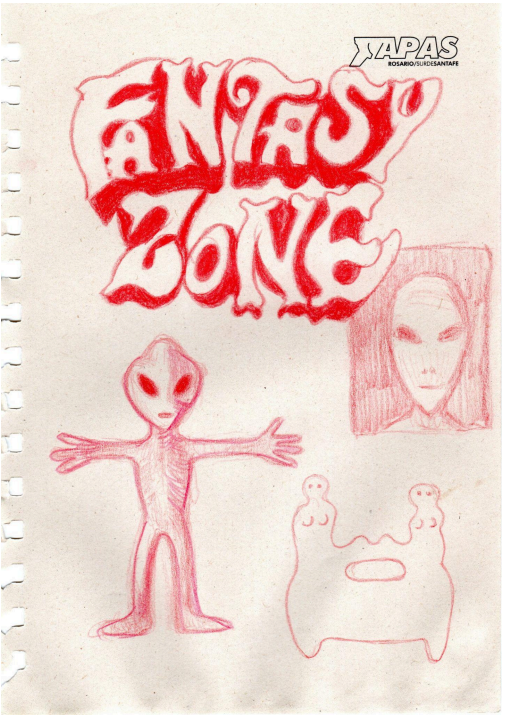 TAPAS
ROSARIO/SURDESANTAFE
FANTASY
ZONE